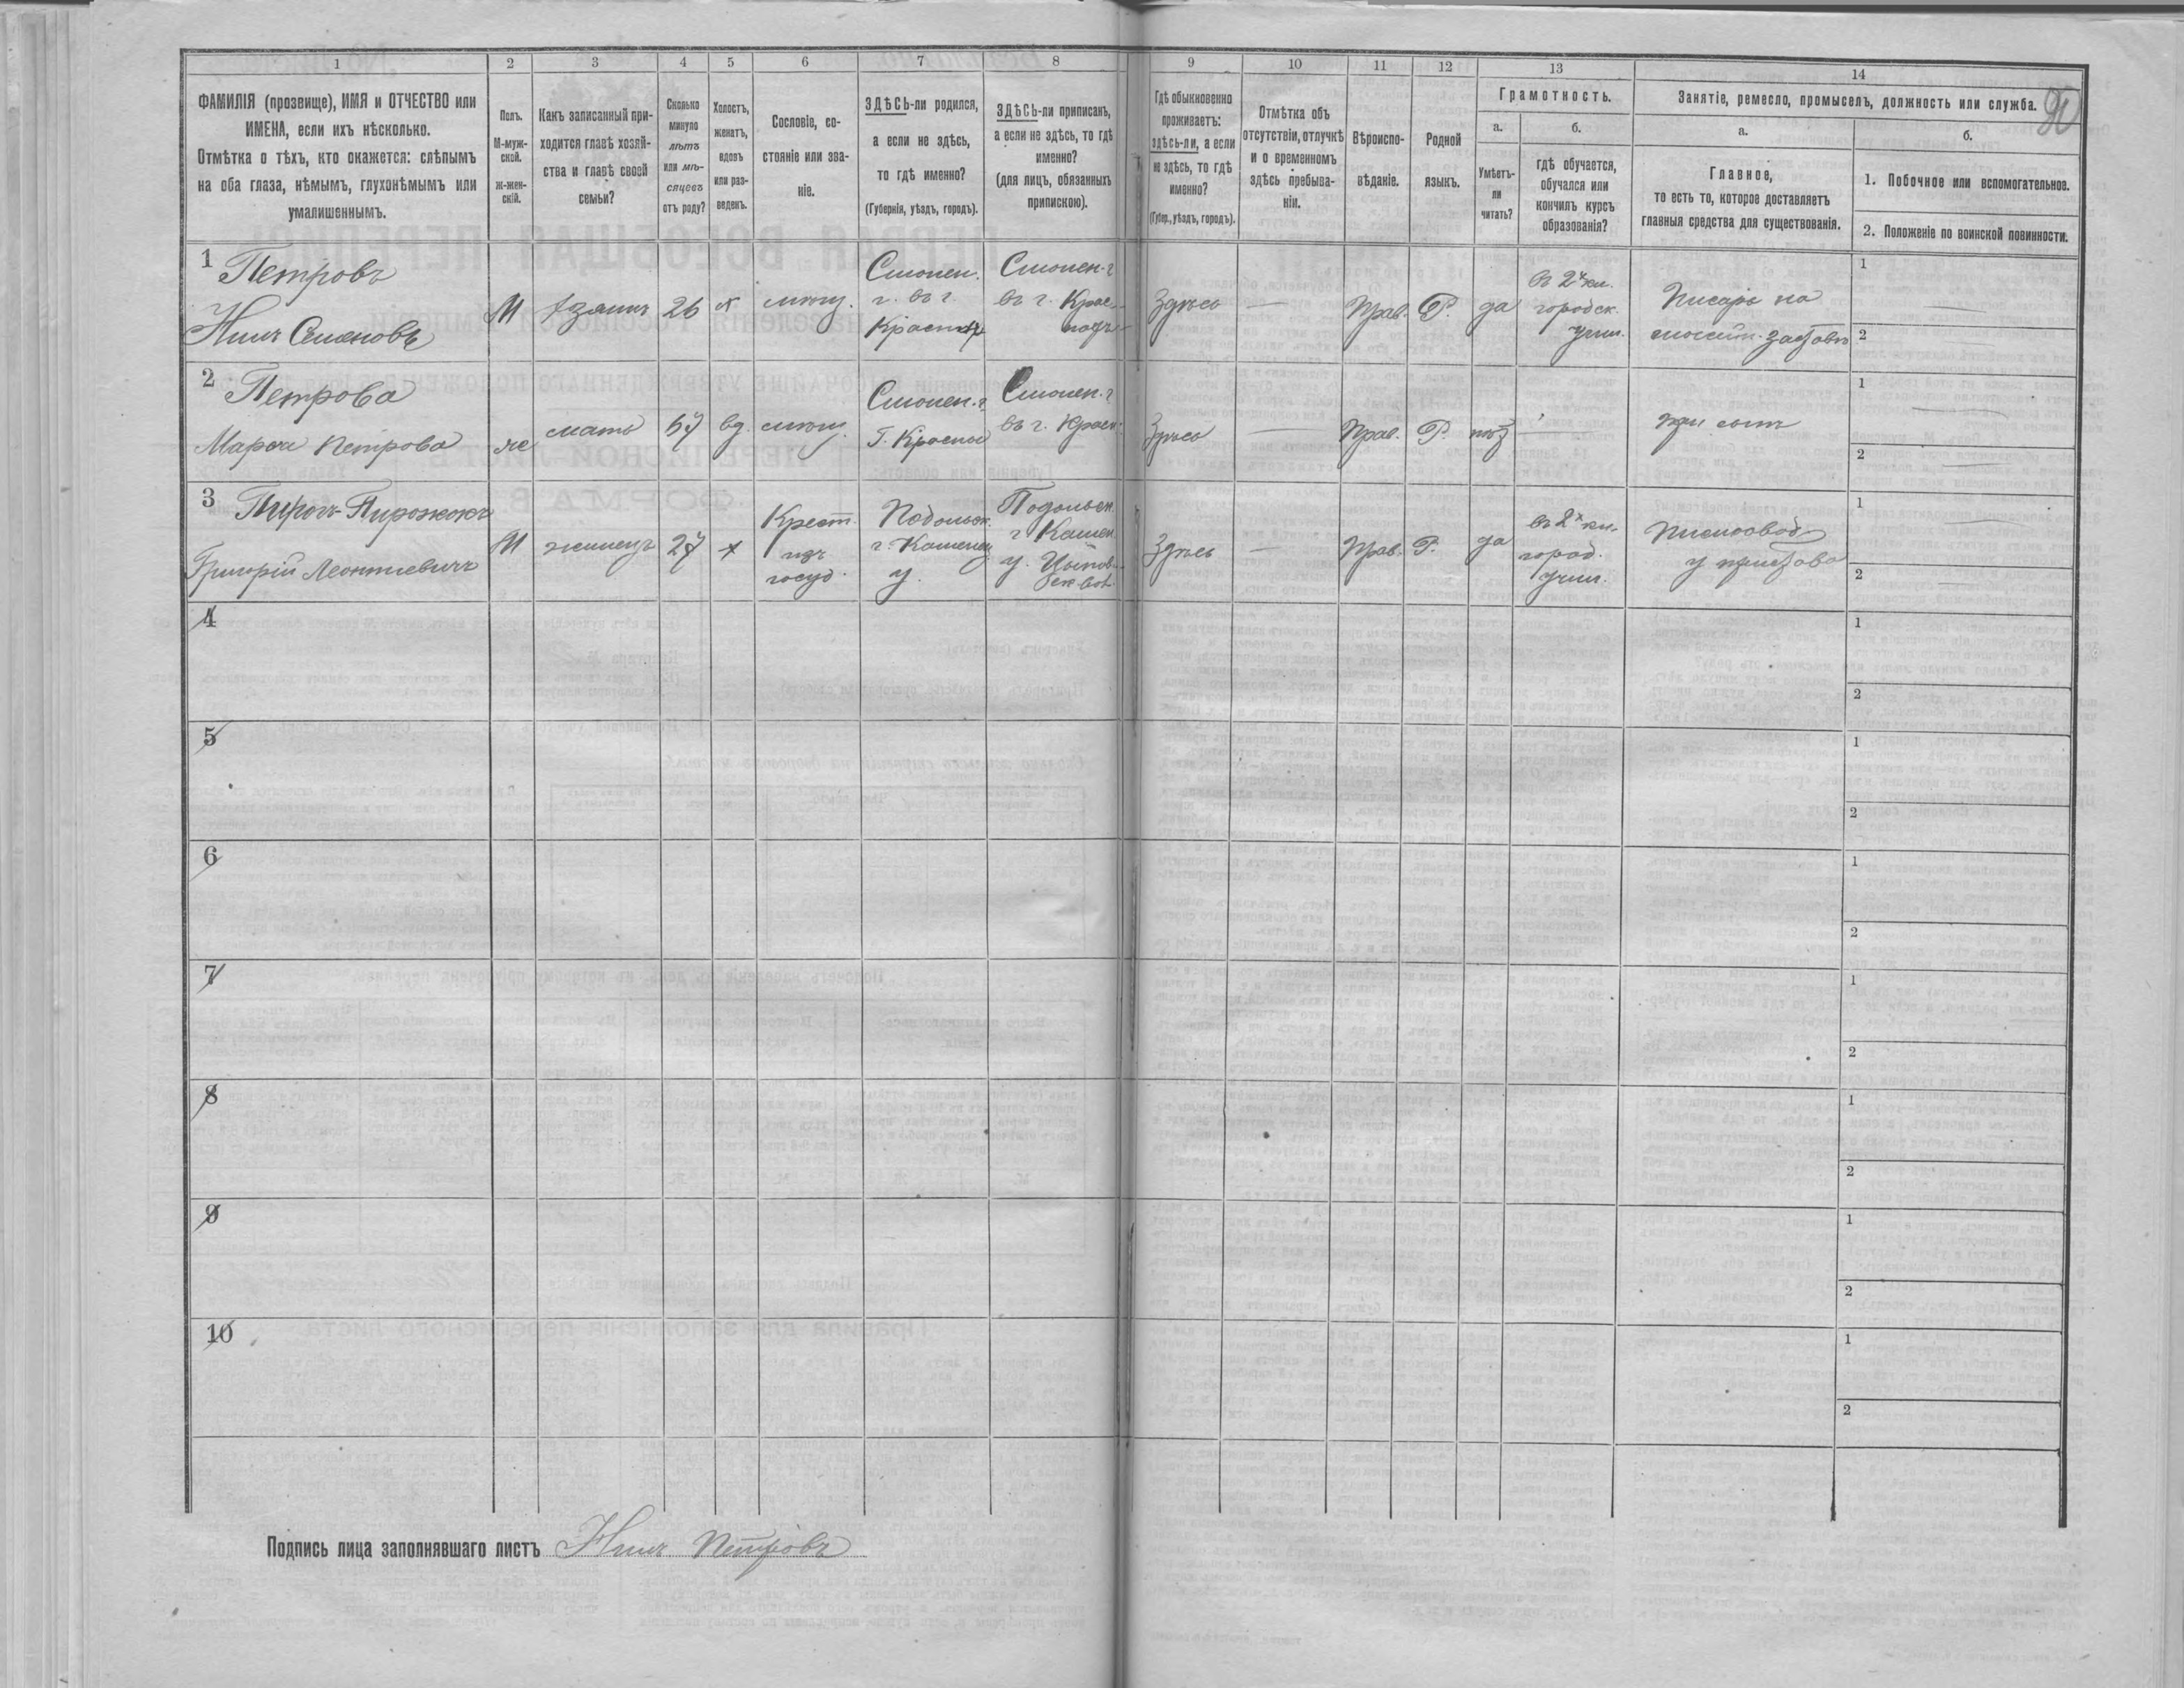 1 2 3 4 5 6 7 8 9 10 11 12 13 14
90
ФАМИЛІЯ (прозвище), ИМЯ и ОТЧЕСТВО или
ИМЕНА, если ихъ нѣсколько.
Отмѣтка о тѣхъ, кто окажется: слѣпымъ
на оба глаза, нѣмымъ, глухонѣмымъ или
умалишеннымъ.
Полъ.
М-муж-
ской.
ж-жен-
скій.
Какъ записанный при-
ходится главѣ хозяй-
ства и главѣ своей
семьи?
Сколько
минуло
лѣтъ
или мѣ-
сяцевъ
отъ роду?
Холостъ,
женатъ,
вдовъ
или раз-
веденъ.
Сословіе, со-
стояніе или зва-
ніе.
ЗДѢСЬ-ли родился,
а если не здѣсь,
то гдѣ именно?
(Губернія, уѣздъ, городъ).
ЗДѢСЬ-ли приписанъ,
а если не здѣсь, то гдѣ
именно?
(для лицъ, обязанныхъ
припискою).
Гдѣ обыкновенно
проживаетъ:
здѣсь-ли, а если
не здѣсь, то гдѣ
именно?
(Губер., уѣздъ, городъ).
Отмѣтка объ
отсутствіи, отлучкѣ
и о временномъ
здѣсь пребыва-
ніи.
Вѣроиспо-
вѣданіе.
Родной
языкъ.
Грамотность.
а.
Умѣетъ-
ли
читать?
б.
гдѣ обучается,
обучался или
кончилъ курсъ
образованія?
Занятіе, ремесло, промыселъ, должность или служба.
а.
Главное,
то есть то, которое доставляетъ
главныя средства для существованія.
б.
1. Побочное или вспомогательное.
2. Положеніе по воинской повинности.
1 Петровъ
Нилъ Семеновъ
М
хозяинъ
26
х
мѣщ.
Смолен.
г. въ г.
Смолен. г
въ г. Крас-
Здѣсь
—
Прав.
Р.
да
въ 2х кл.
городск.
учил.
Писарь на
1
—
2
2 Петрова
Петрова
же
мать
67
вд.
мѣщ.
Смолен. г
г. Красный
Смолен. г
въ г. Красн.
Здѣсь
—
Прав.
Р.
при сынѣ
1
—
2
—
3 Пирогъ-Пирожокъ
Григорій Леонтьевичъ
М
жилецъ
27
х
Крест.
изъ
госуд.
Подольск.
г. Каменец
у.
Подольск.
г. Камен.
Здѣсь
—
Прав.
Р.
да
въ 2х кл.
город.
учил.
Письмовод.
у пристава
1
—
2
—
4
1
2
5
1
2
6
1
2
7
1
2
8
1
2
9
1
2
10
1
2
Подпись лица заполнявшаго листъ Нилъ Петровъ